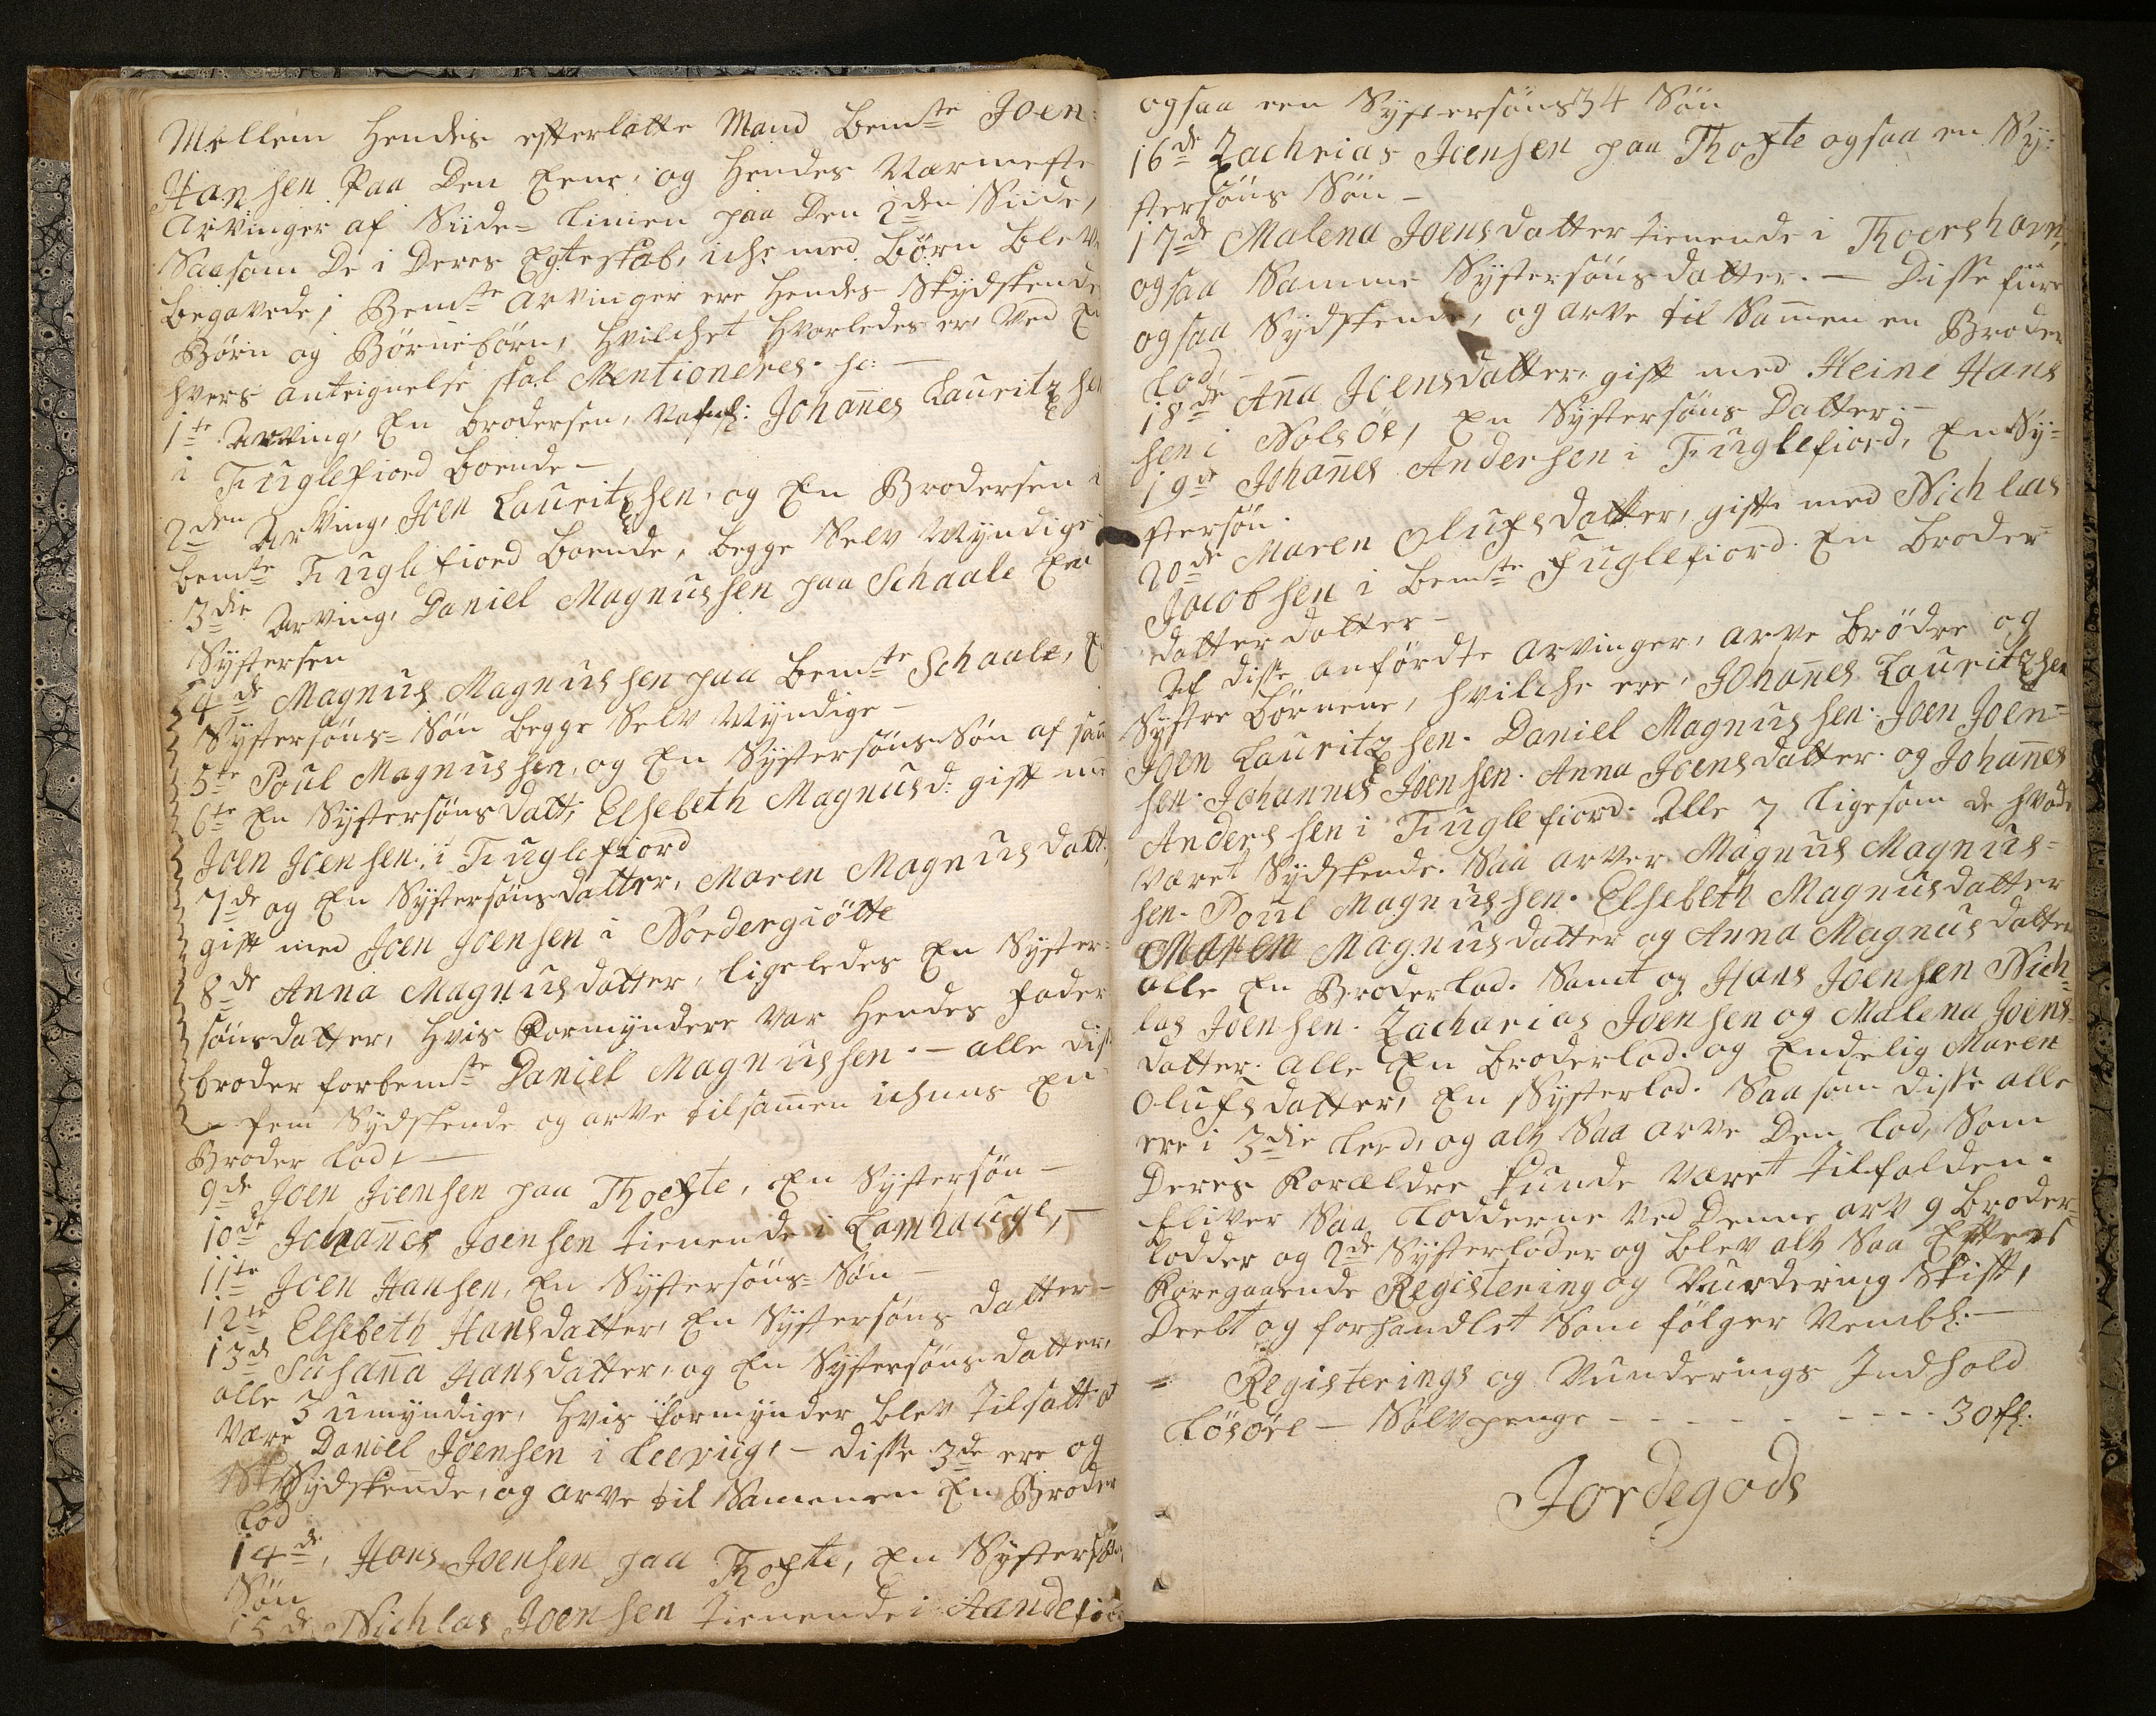 Mellem hendes efterlatte Mand bemte Joen
Hansen paa den Eene, og hendes Nærmeste
Arvinger af Siide-Linien paa den 2den Siide,
Saasom de i deres Egteskab, iche med börn blev
begavede; Bemte Arvinger ere hendes Sÿdskende
Börn og Börnebörn, hvilchet hvorledes er, ved En
hvers anteignelse skal Mentioneres. sc: —
1te Arving, En brodersen, Nafnl: Johañes Lauritzsen
i Fuglefiord boende —
2den Arving, Joen Lauritzsen, og En Brodersen i
bemte Fuglefiord boende, begge Selv Mÿndige
3die Arving, Daniel Magnussen paa Schaale En
Sÿstersen
4de Magnus Magnussen paa bemte Schaale, E
Sÿstersöns-Sön begge Selv Mÿndige —
5te Poul Magnussen, og En Sÿstersöns Sön af sam
6te En Sÿstersöns datt; Elsebeth Magnusd: gift me
Joen Joensen i Fuglefiord
7de og En Sÿstersöns datter, Maren Magnusdatt:
gift med Joen Joensen i Nordergiötte
8de Anna Magnusdatter, ligeledes En Sÿster-
sönsdatter, hvis Formÿndere var hendes fader
broder forbemte Daniel Magnussen. — alle diss
fem Sÿdskende og arve tilsam̃en ichuns En
Broder lod, —
9de Joen Joensen paa Thofte, En Sÿstersön —
10de Johañes Joensen tienende i Lamhauge, —
11te Joen Hansen, En Sÿstersöns-Sön —
12te Elsebeth Hansdatter, En Sÿstersöns datter —
13de Susaña Hansdatter, og En Sÿstersöns datter,
alle 3 umÿndige, hvis formÿnder blev tilsatt at
være Daniel Joensen i Leervig, — disse 3de ere og
Sÿdskende, og arve til Samenen En Broder
Lod
14de, Hans Joensen paa Thofte, En Sÿstersöns
Sön
15de Nichlas Joensen tienende i Aandefiord
ogsaa een Sÿstersöns 34 Sön
16de Zachrias Joensen paa Thofte ogsaa en Sÿ-
stersöns Sön —
17de Malena Joensdatter tienende i Thorshavn,
ogsaa Samme Sÿstersöns datter. — Disse fiire
ogsaa Sÿdskende, og arve til Sam̃en en Broder
Lod, —
18de Aña Joensdatter, gift med Heine Hans
sen i Nolsöe, En Sÿstersöns Datter. —
19de Johañes Andersen i Fuglefiord, En Sÿ-
stersön.
20de Maren Olufsdatter, gift med Nichlas
Jacobsen i bemte Fuglefiord. En broder
datter datter —
Af disse anfördte Arvinger, arve brödre og
Sÿstre börnene, hvilche ere, Johañes Lauritzsen
Joen Lauritzsen. Daniel Magnussen. Joen Joen-
sen. Johannes Joensen. Anna Joensdatter. og Johañes
Andersen i Fuglefiord. Alle 7 ligesom de havde
været Sÿdskende. Saa arver Magnus Magnus-
sen. Poul Magnussen. Elsebeth Magnusdatter
Maren Magnusdatter og Anna Magnusdatter
alle En Broderlod. Samt og Hans Joensen Nich-
las Joensen. Zacharias Joensen og Malena Joens-
datter. alle En broderlod. og Endelig Maren
Olufsdatter, En Sÿsterlod. Saa som disse alle
ere i 3die Leed, og altz Saa arve den Lod, Som
deres Forældre kunde været tilfalden.
bliver Saa Lodderne ved denne arv 9 broder-
lodder og 2de Sÿsterloder og blev altz Saa Efter
Foregaaende Registering og Vurdering Skift,
Deelt og forhandlet Som fölger Vembl: —
Registerings og Vunderings Indhold
Lösöre — Sölvpenge - - - - - - - - - 30 fl:
Jordegods